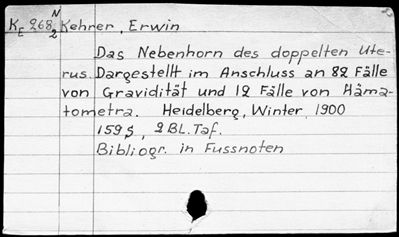 K_E 268 N/2 Kehrer, Erwin
Das Nebenhorn des doppelten Ute-
rus. Dargestellt im Anschluss an 82 Fälle
von Gravidität und 12 Fälle von Häma-
tometra. Heidelberg, Winter, 1900
159 S, 2 BL. Taf.
Bibliogr. in Fussnoten